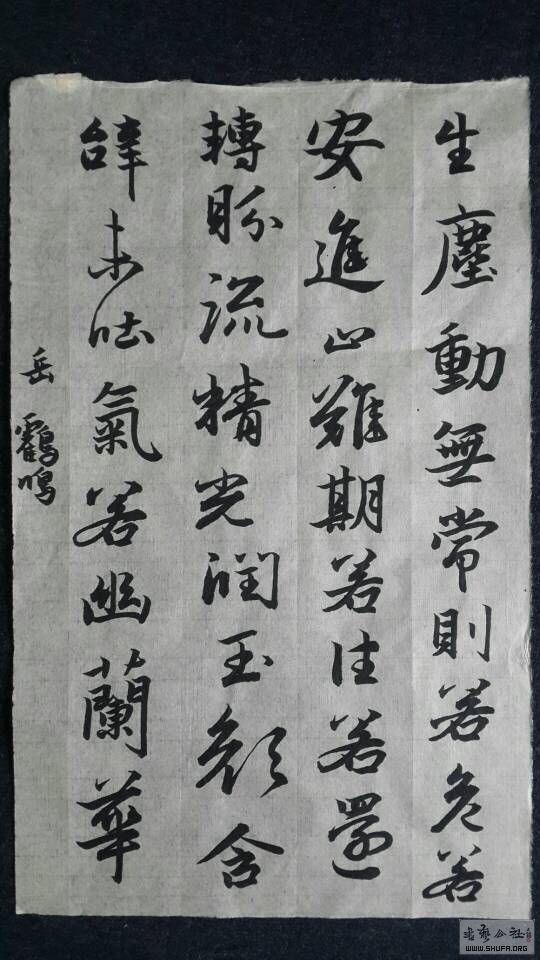 生塵動無常則若危若
安進止難期若往若還
轉盼流精光潤玉顏含
辞未吐氣若幽蘭華
岳 鸖鳴
书艺公社
WWW.SHUFA.ORG